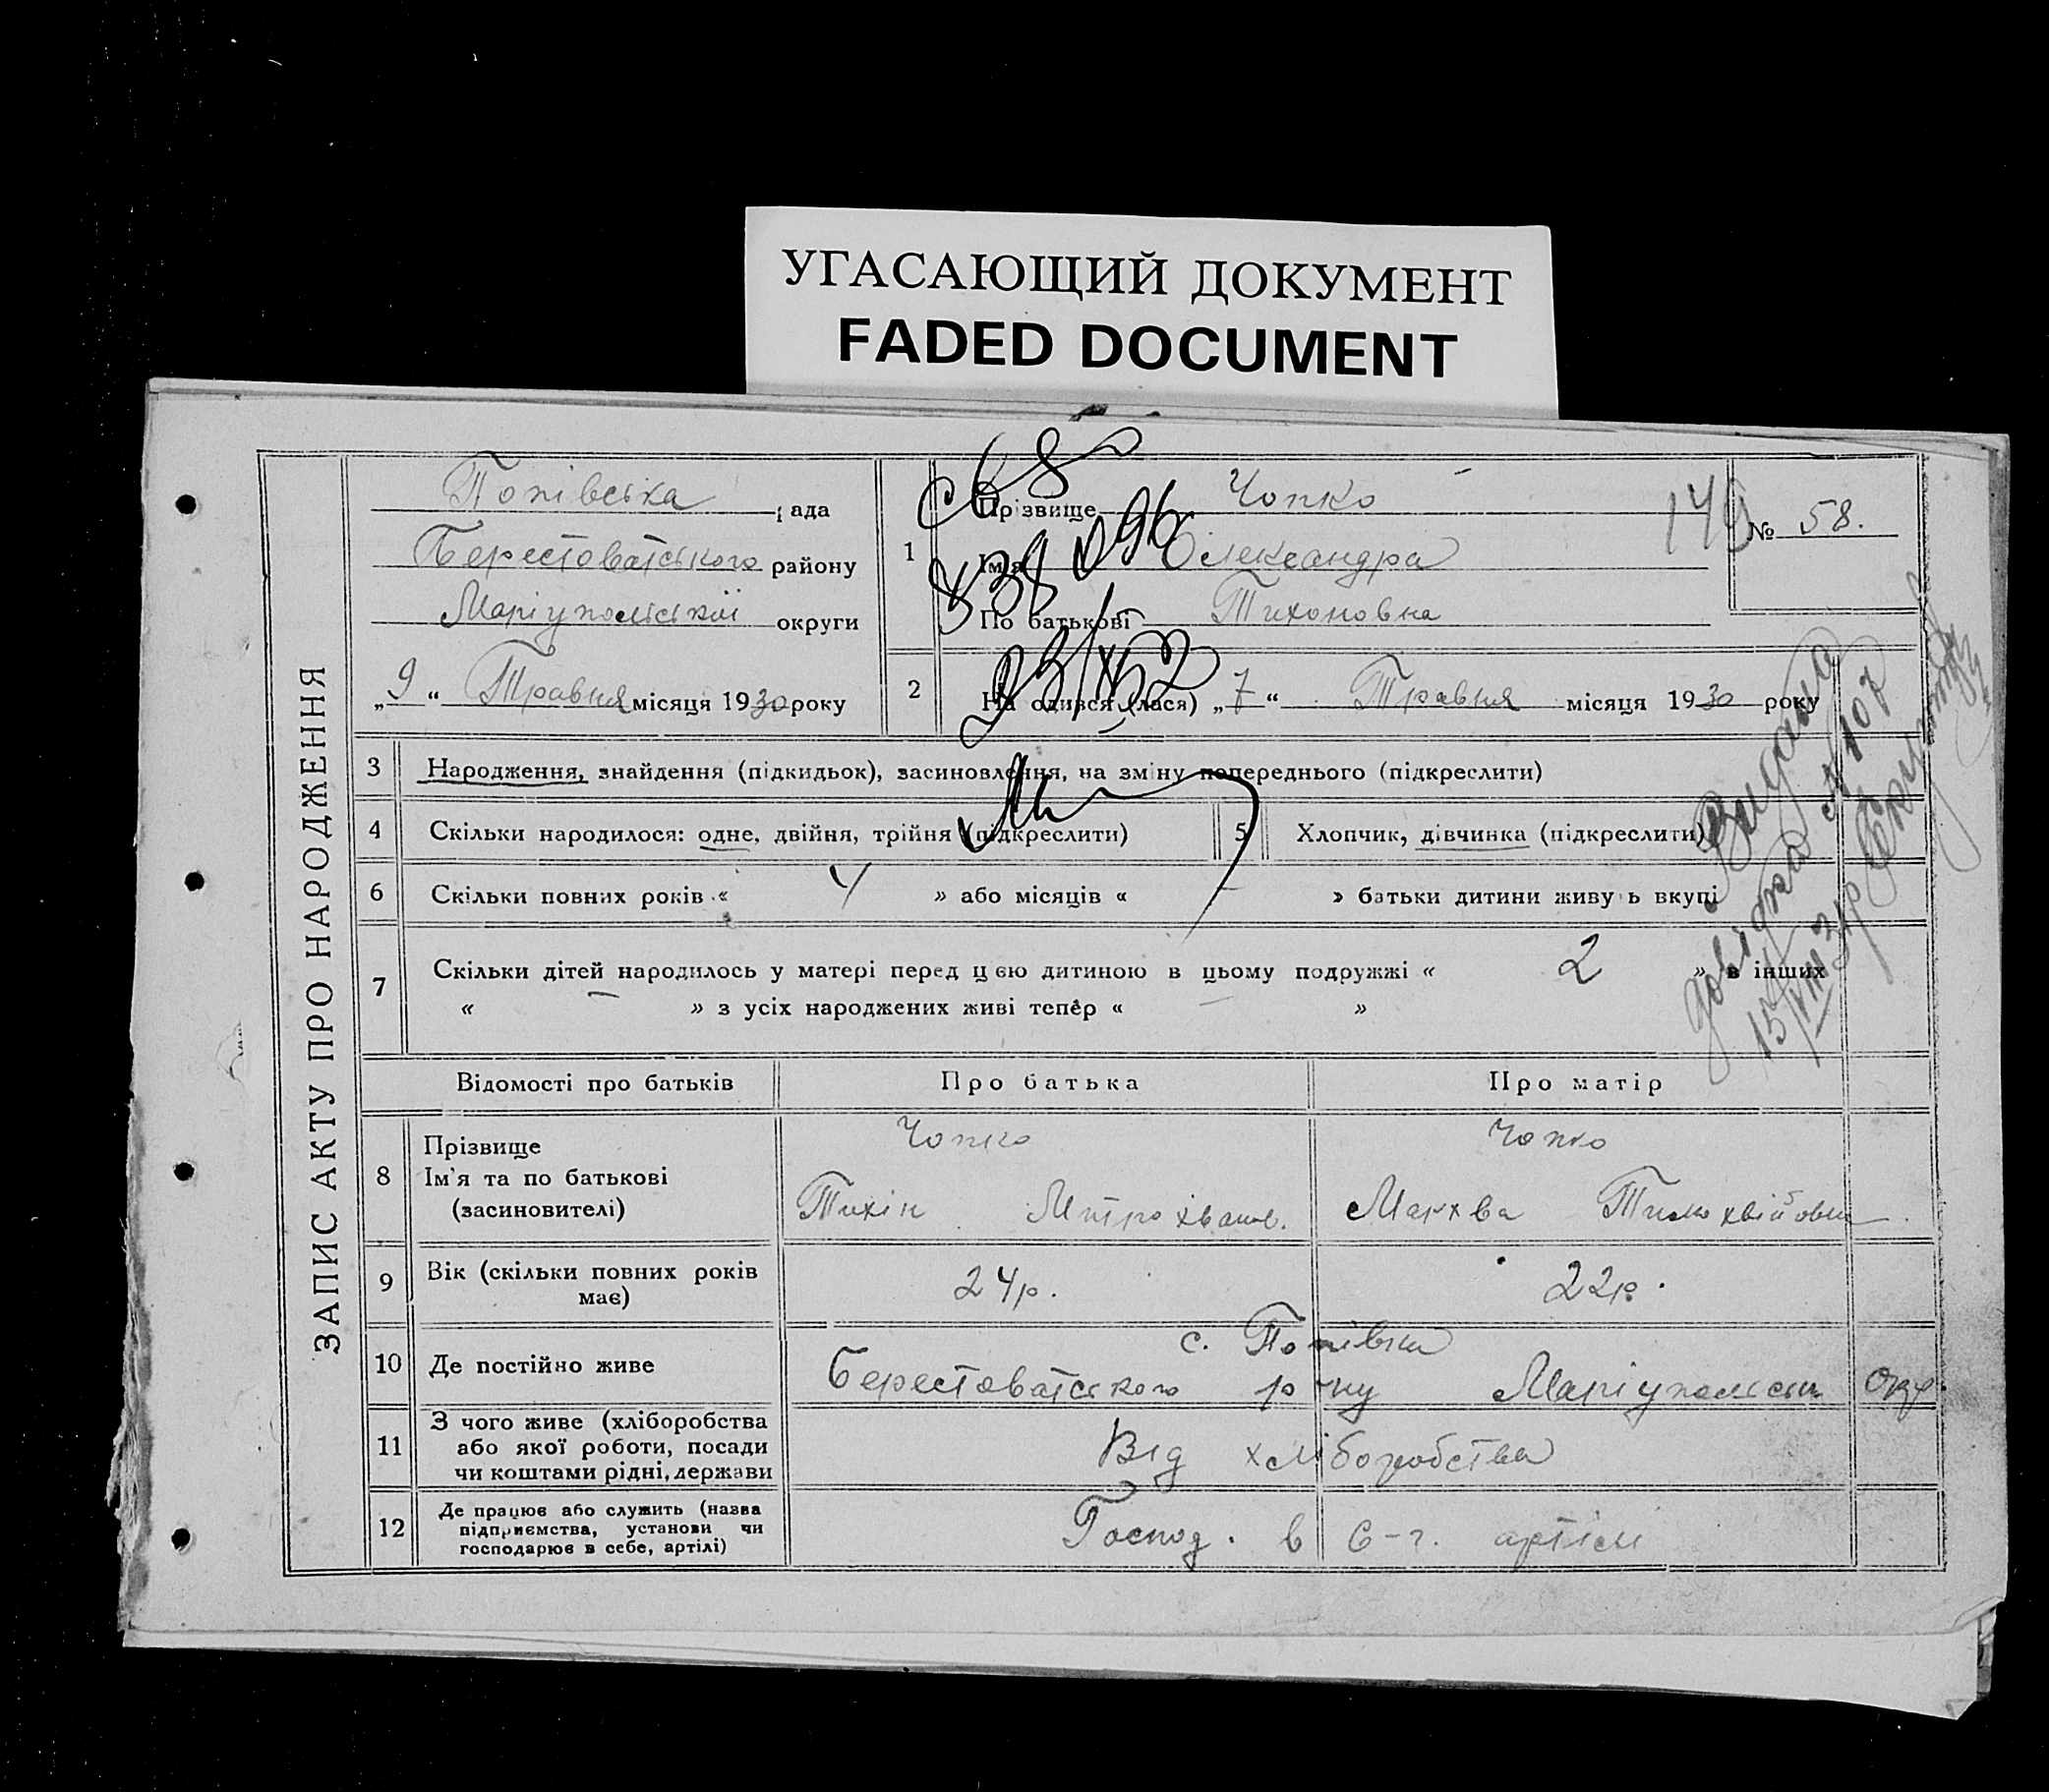 УГАСАЮЩИЙ ДОКУМЕНТ
FADED DOCUMENT
ЗАПИС АКТУ ПРО НАРОДЖЕННЯ
Попівська рада
Берестоватського району
Маріупольської округи
„9“ Травня місяця 1930 року
1 Прізвище Чопко
Ім'я Олександра
По батькові Тихоновна
149
№ 58.
2 На одився (лася) „7“ Травня місяця 1930 року
св 8
838096
23/IX 52
Видано
довідка № 107
15/VIII 31р
3 Народження, знайдення (підкидьок), засиновлення, на зміну попереднього (підкреслити)
4 Скільки народилося: одне, двійня, трійня (підкреслити)
5 Хлопчик, дівчинка (підкреслити)
6 Скільки повних років « 4 » або місяців « — » батьки дитини живу ь вкупі
7 Скільки дітей народилось у матері перед цією дитиною в цьому подружжі « 2 » в інших
« — » з усіх народжених живі тепер « — »
Відомості про батьків Про батька Про матір
8 Прізвище Чопко Чопко
Ім'я та по батькові
(засиновителі) Тихін Митрохванов. Мархва Тимохвійовна
9 Вік (скільки повних років
має) 24р. 22р.
с. Попівка
10 Де постійно живе Берестоватського р-ну Маріупольськ окр.
11 З чого живе (хліборобства
або якої роботи, посади
чи коштами рідні, держави Від хліборобства
12 Де працює або служить (назва
підприємства, установи чи
господарює в себе, артілі) Господ. в с-г. артілі